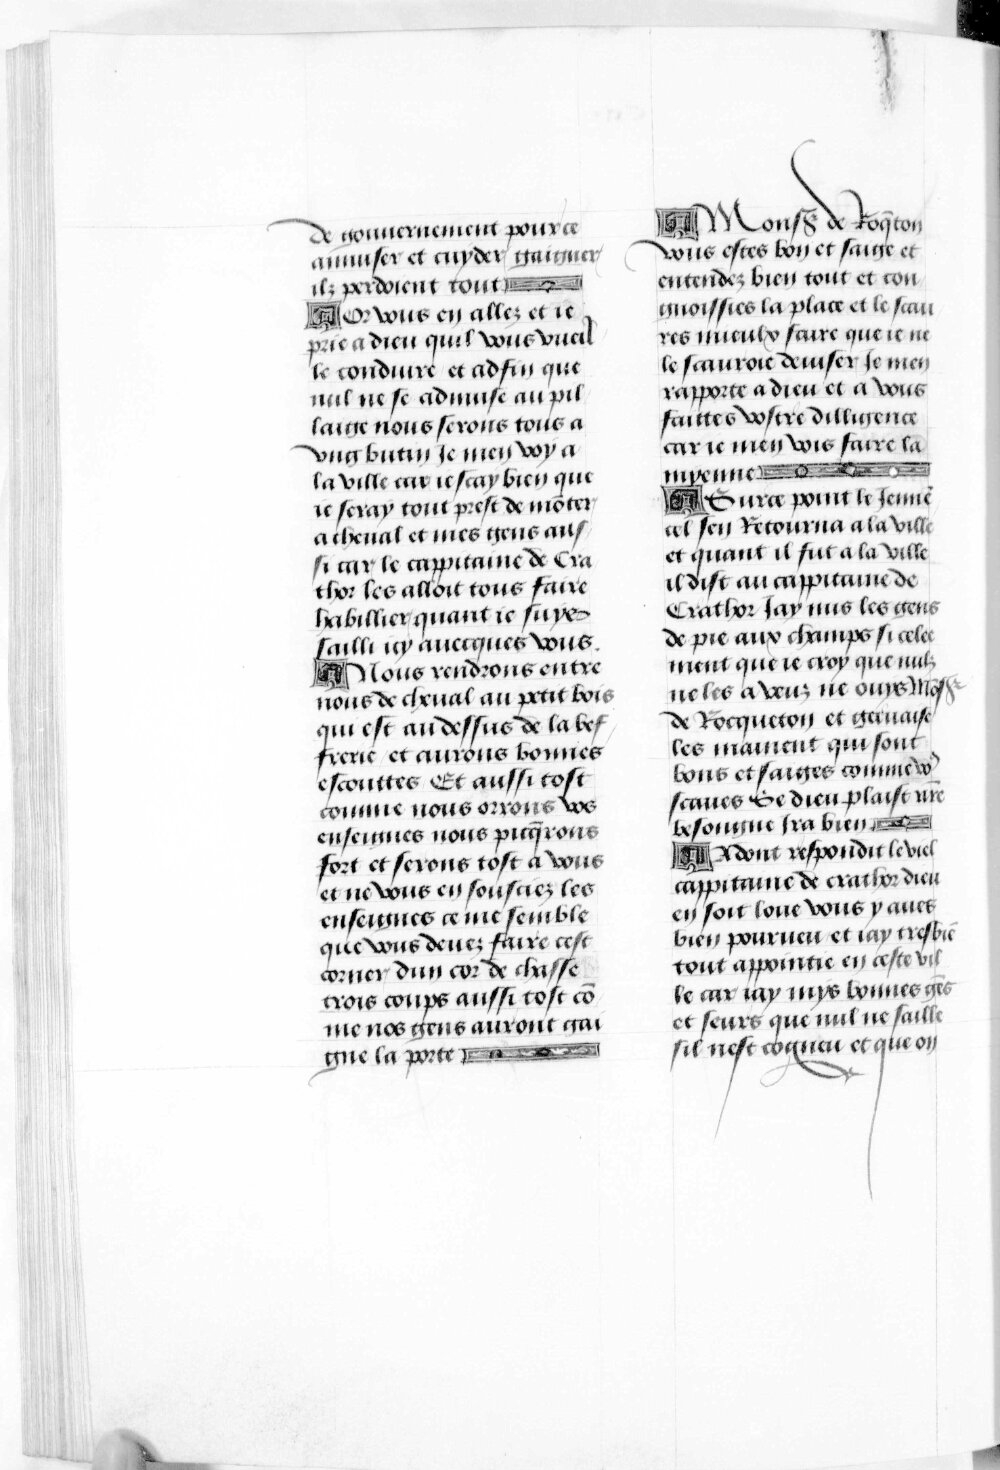 de gouvernement pour ce
amuser et cuyder gaigner
ilz perdoient tout
Or vous en allez et ie
prie a dieu quil vous vueil
le conduire et adfin que
nul ne se admuse au pil
laige nous serons tous a
vng butin Je men voy a
la ville car ie scay bien que
ie seray tout prest de mōter
a cheual et mes gens aus
si car le cappitaine de Cra
thor les alloit tous faire
habillier quant ie suys
sailli icy auecques vous.
Nous rendrons entre
nous de cheual au petit bois
qui est au dessus de la bef
frerie et aurons bonnes
escouttes Et aussi tost
comme nous orrons vos
enseignes nous picq̄rons
fort et serons tost a vous
et ne vous en sousciez les
enseignes ce me semble
que vous deuez faire cest
corner dun cor de chasse
trois coups aussi tost cō
me nos gens auront gai
gne la porte
Monsr̄ de Roq̄ton
vous estes bon et saige et
entendez bien tout et con
gnoissies la place et le scau
res mieulx faire que ie ne
le scauroie deuiser Je men
rapporte a dieu et a vous
faittes vostre dilligence
car ie men vois faire la
myenne
Sur ce point le Jenne
cel sen Retourna a la ville
et quant il fut a la ville
il dist au cappitaine de
Crathor Jay mis les gens
de pie aux champs si celee
ment que ie croy que nulz
ne les a veuz ne ouys Mōsr̄
de Rocqueton et geruaise
les mainent qui sont
bons et saiges comme vo9
scaues Se dieu plaist nr̄e
besongne Jra bien
Adont respondit le viel
cappitaine de crathor dieu
en soit loue vous y aues
bien pourueu et iay tresbiē
tout appointie en ceste vil
le car iay mys bonnes gēs
et seurs que nul ne saille
sil nest cogneu et que on